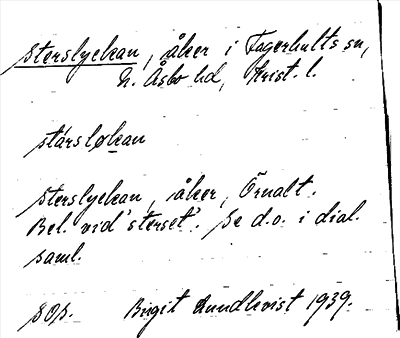 Sterslyckan, åker i Fagerhults sn,
N. Åsbo hd, Krist. l.
stársløkan
Sterslyckan, åker, Örnalt.
Bel. vid 'sterset'. Se d.o. i dial.
saml.
Birgit Lundkvist 1939.